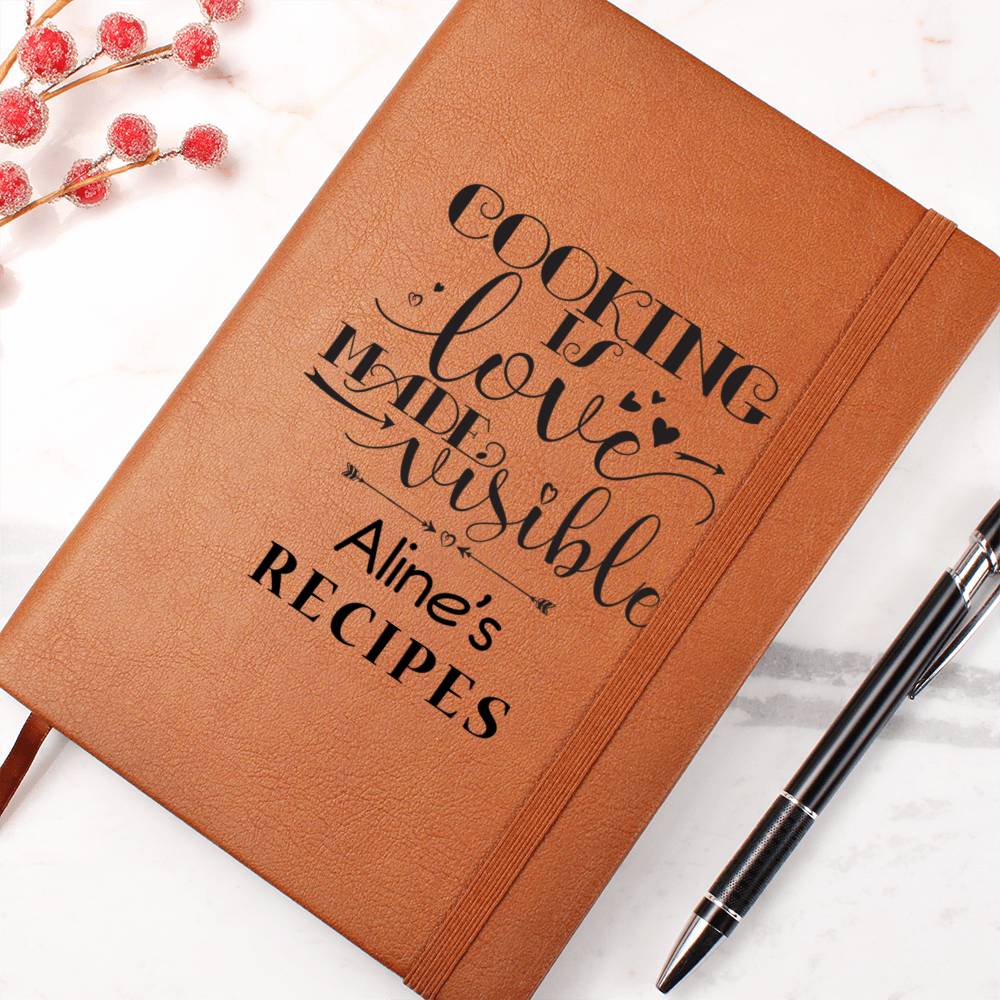 COOKING
IS
love
MADE
visible
Aline's
RECIPES